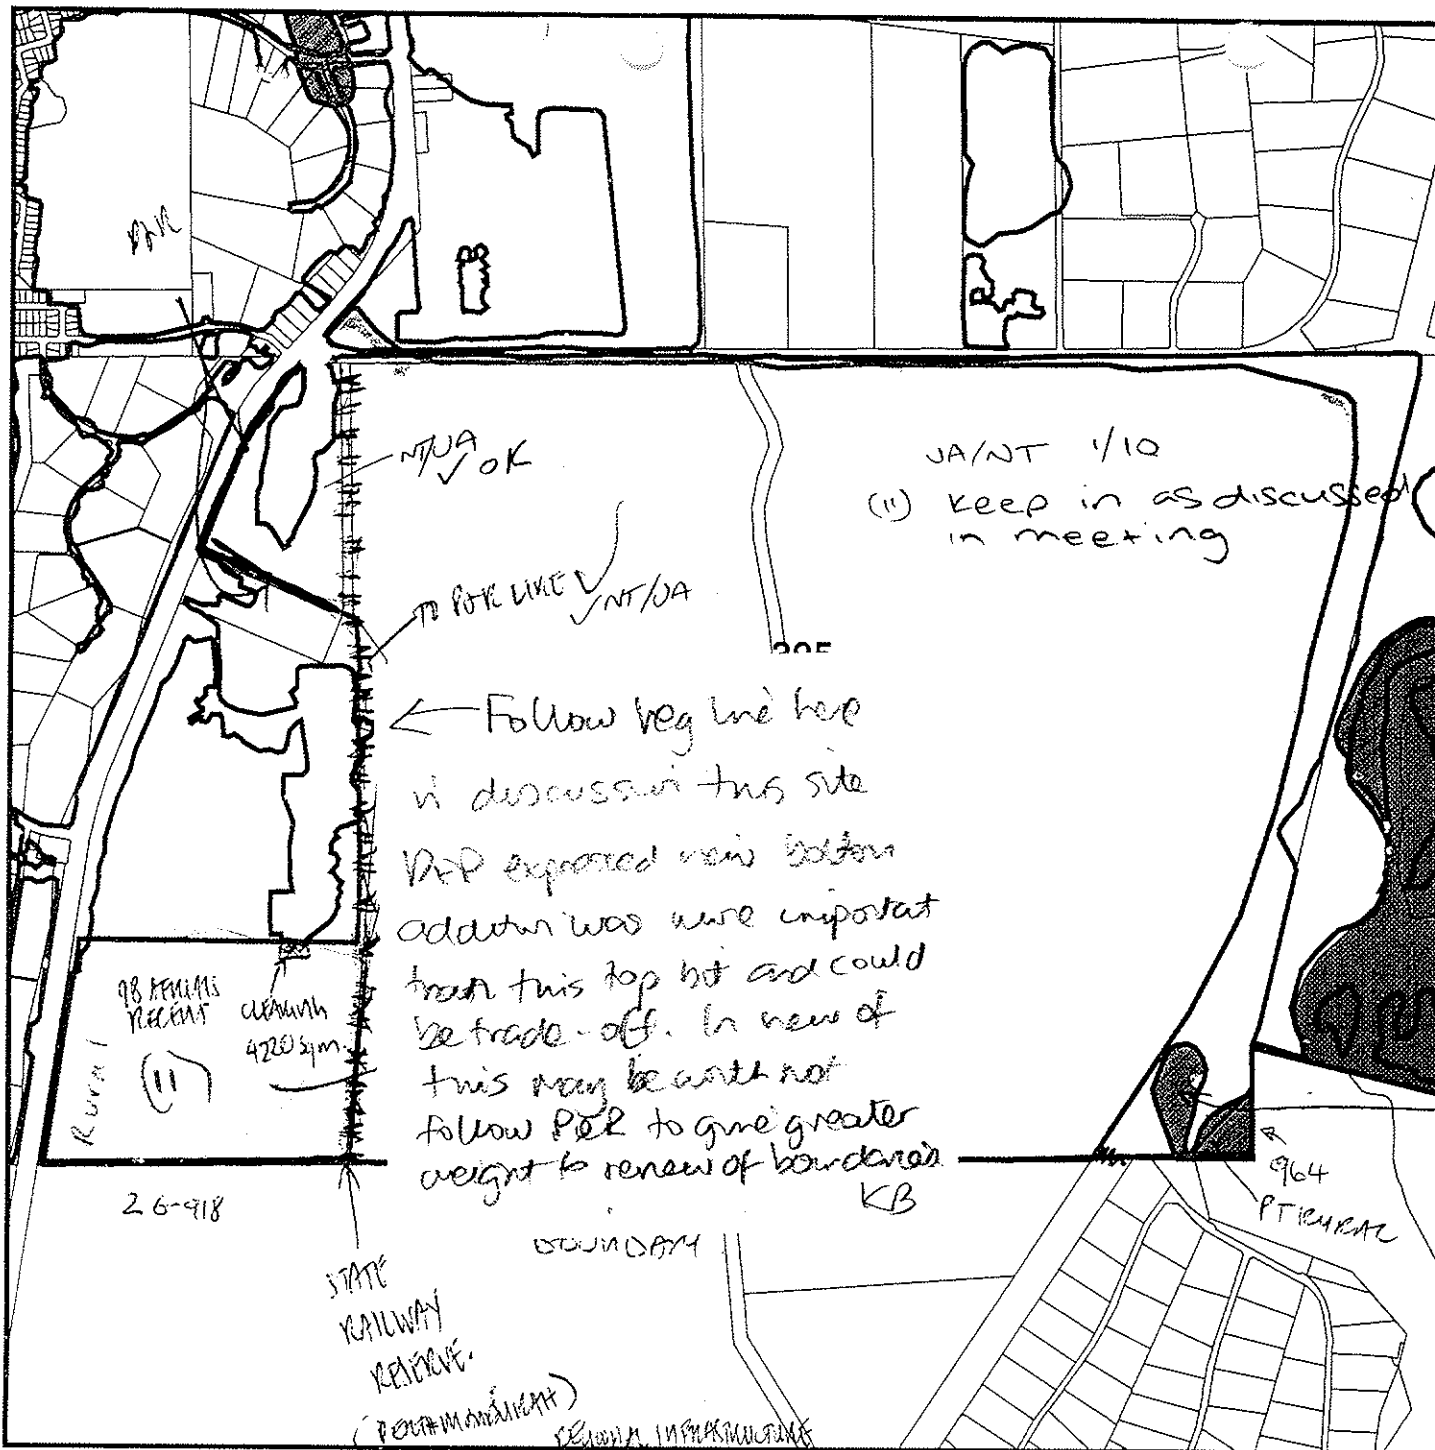 P&R
NT/UA
✓ OK
UA/NT 1/10
(11) keep in as discussed
in meeting
TO P&R LINE ✓
✓ NT/UA
395
← Follow veg line here
in discussion this site
P&R expressed view bottom
addition was more important
than this top bit and could
be trade-off. In view of
this may be worth not
follow P&R to give greater
weight to review of boundaries
KB
98 AERIALS
RECENT
(11)
Rural
CLEARING
4220 sqm.
26-918
BOUNDARY
964
PT RURAL
STATE
RAILWAY
RESERVE.
(PERTH MANDURAH)
REGIONAL INFRASTRUCTURE